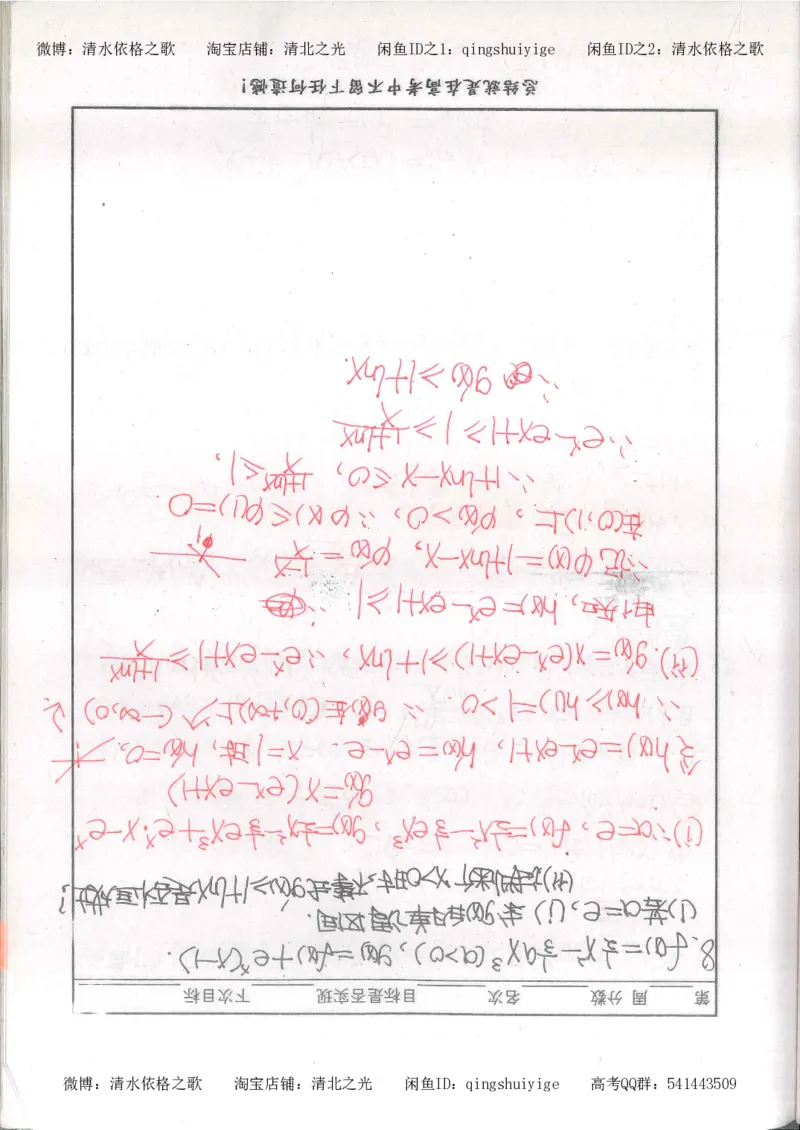 微博：清水依格之歌 淘宝店铺：清北之光 闲鱼ID之1：qingshuiyige 闲鱼ID之2：清水依格之歌
第 周 分数 名次 目标是否实现 下次目标
8. f(x)=½x²-⅓ax³ (a>0), g(x)=f(x)+eˣ(x-1).
(1)若a=e, (i) 求g(x)的单调区间.
(ii) 判断x>0时不等式g'(x)≥1+lnx是否恒成立?
(i)∵a=e, f(x)=½x²-⅓ex³, g(x)=½x²-⅓ex³+eˣ·x-eˣ
g'(x)=x(eˣ-ex+1)
令h(x)=eˣ-ex+1, h'(x)=eˣ-e x=1时, h'(x)=0,
∴h(x)≥h(1)=1>0 ∴g(x)在(0,+∞)上↗ (-∞,0)↘
(ii). g'(x)=x(eˣ-ex+1)≥1+lnx, ∴eˣ-ex+1≥(1+lnx)/x
h(x)=eˣ-ex+1≥1
∴记φ(x)=1+lnx-x, φ'(x)=(1-x)/x 1
在(0,1)上, φ'(x)>0, ∴φ(x)≤φ(1)=0
∴1+lnx-x≤0, (1+lnx)/x≤1,
∴eˣ-ex+1≥1≥(1+lnx)/x
∴g'(x)≥1+lnx.
总结就是在高考中不留下任何遗憾!
微博：清水依格之歌 淘宝店铺：清北之光 闲鱼ID：qingshuiyige 高考QQ群：541443509